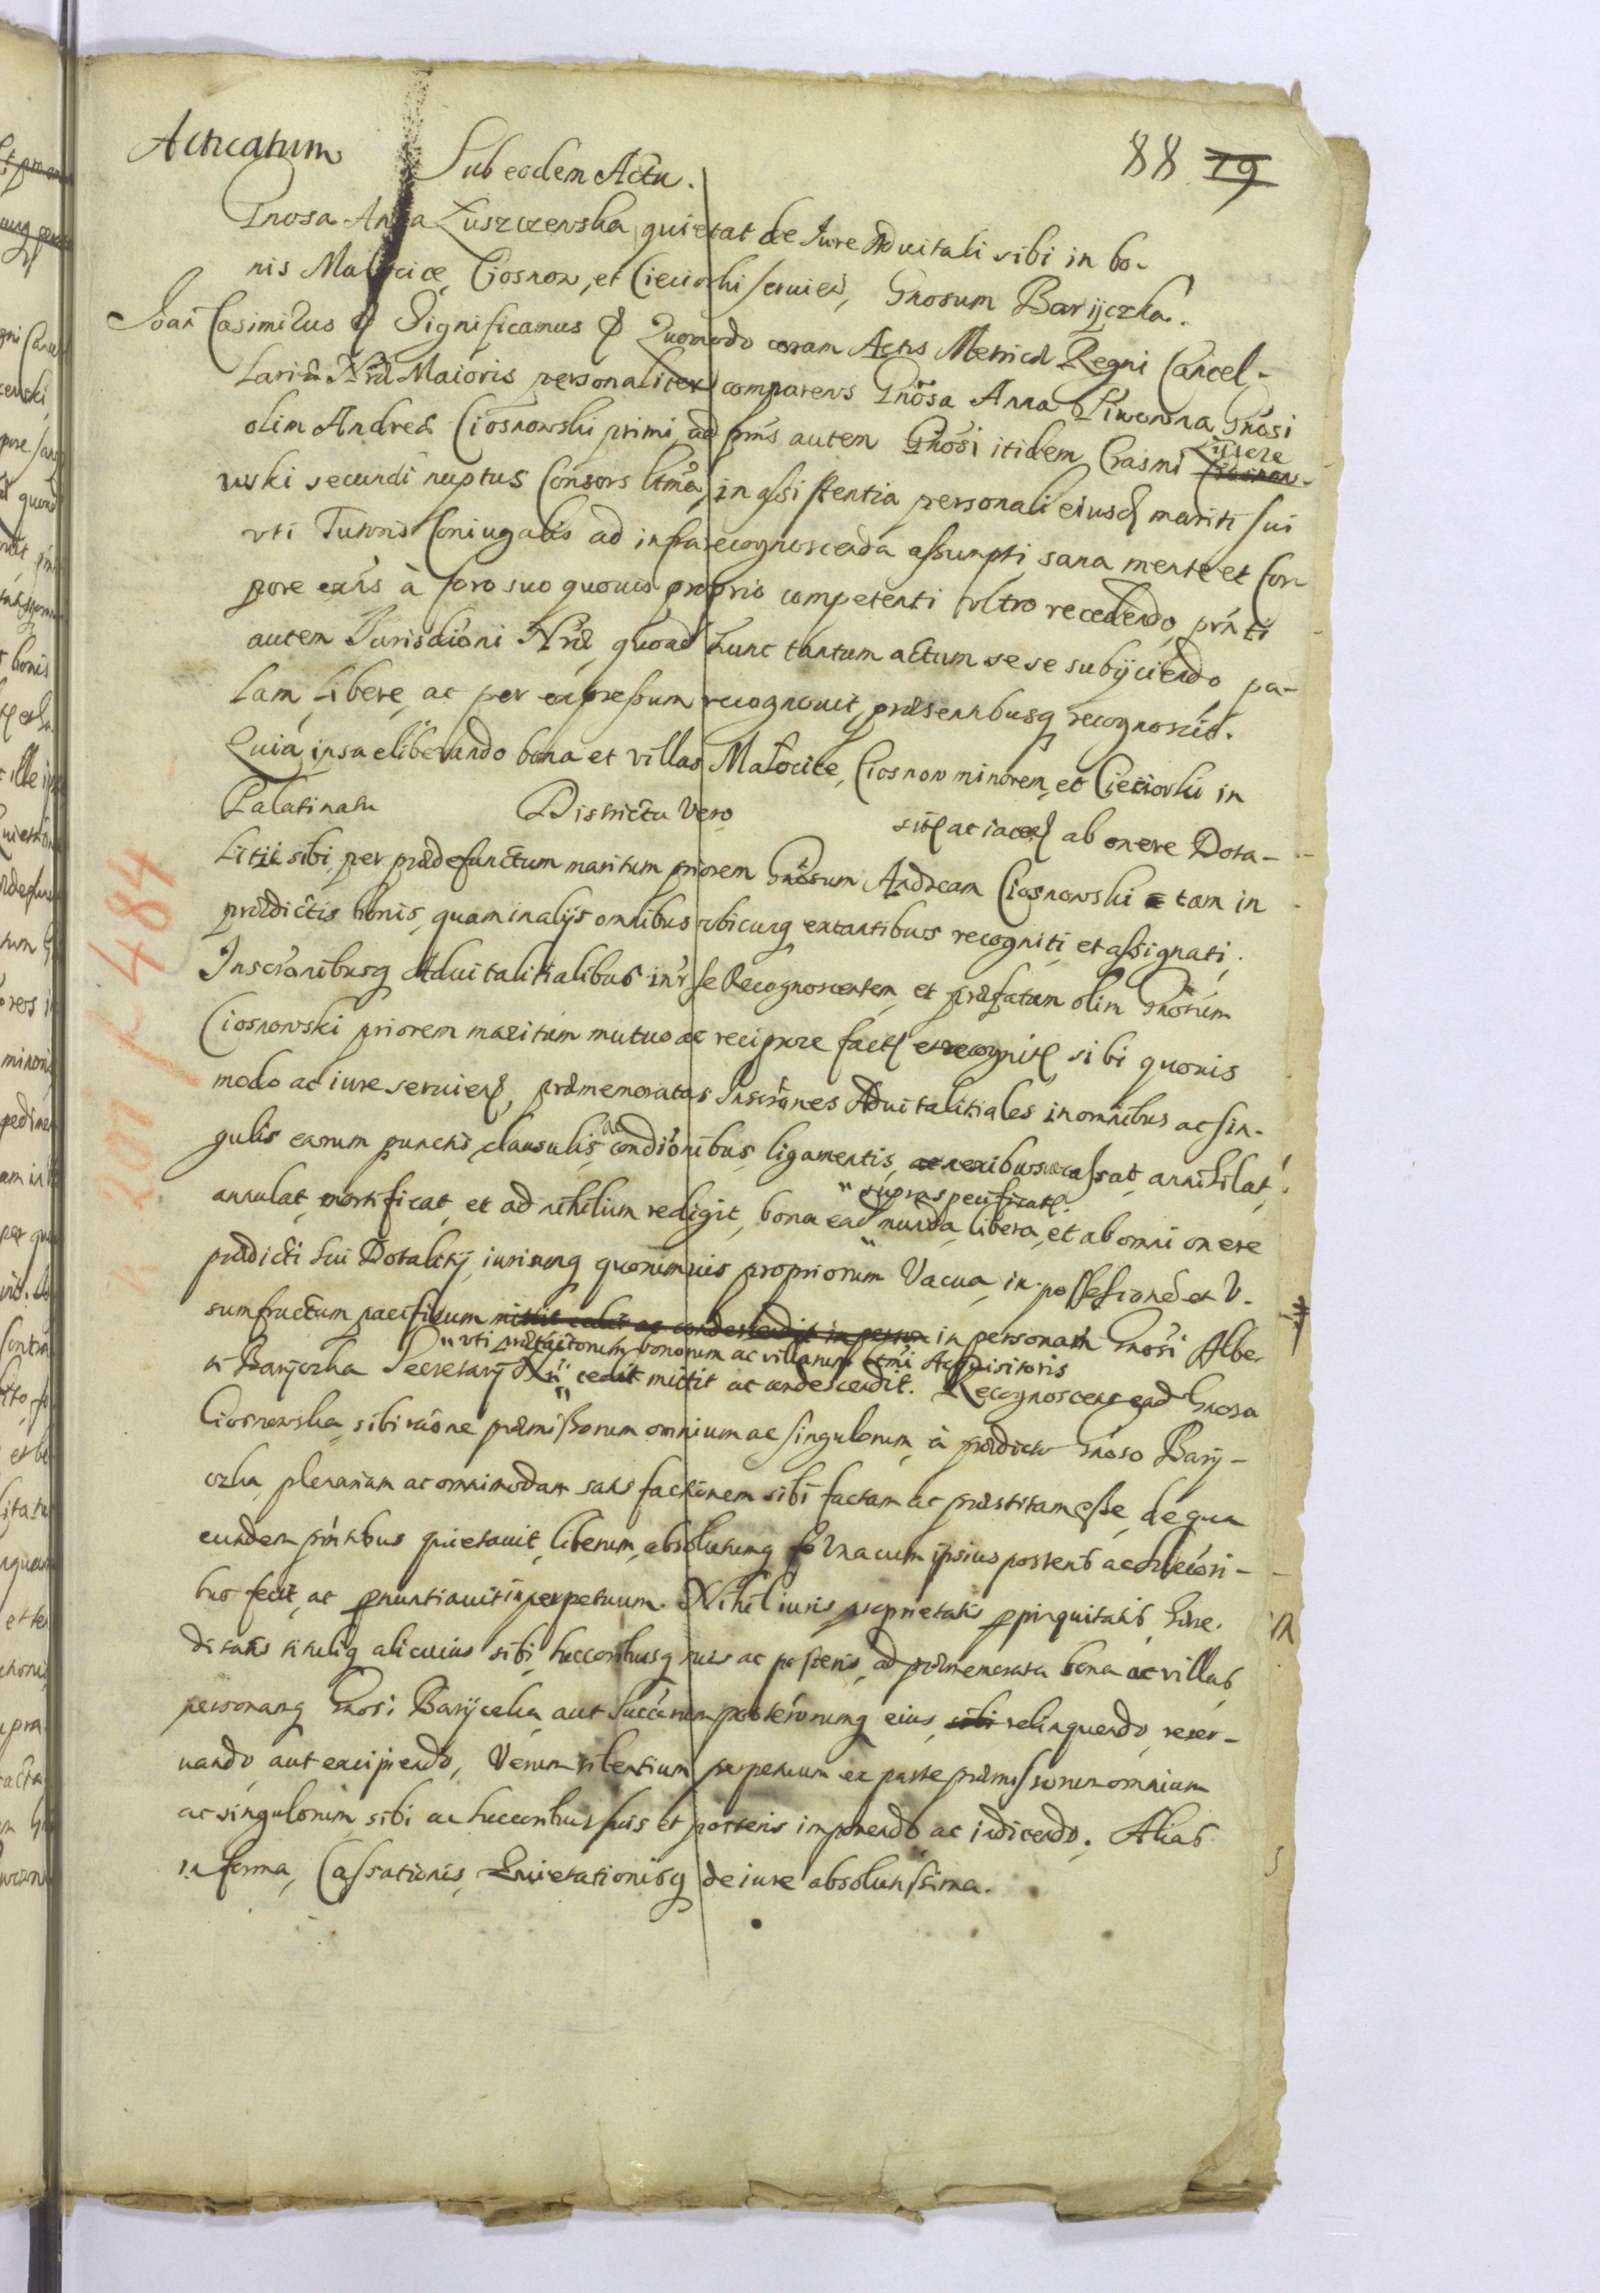 Acticatum
88 79
Sub eodem Actu.
Gnosa Anna Łuszczewska quietat de Iure Aduitali sibi in bo-
nis Małocice, Ciosnow, et Cieciorki seruien, Gnosum Baryczka.
Joan Casimirus & Significamus & Quomodo coram Actis Metrices Regni Cancel-
lariæ Nræ Maioris personaliter comparens Gnosa Anna Gnosi
olim Andreæ Ciosnowski primi, ad pns autem Gnosi itidem Erasmi Łuszcze
Ciosnow-
wski secundi nuptus Consors ltma, in assistentia personali eiusd mariti sui
vti Tutoris Coniugalis ad infra recognoscenda assumpti, sana mente et Cor-
pore exns à foro suo quouis proprio competenti vltro recedendo, prnti
autem Jurisdioni Nræ quoad hunc tantum actum sese subijciendo pa-
lam, libere, ac per expressum recognouit, præsentibusq recognoscit.
Quia ipsa eliberando bona et villas Małocice, Ciosnow minorem, et Cieciorki in
Palatinatu Districtu vero sit ac iacen ab onere Dota-
litii sibi per prædefunctum maritum priorem Gnosum Andream Ciosnowski tam in
prædictis bonis, quam in alijs omnibus vbicunq extantibus recogniti, et assignati,
Inscionibusq Aduitalitialibus intr se Recognoscentem, et præfatum olim Gnosum
Ciosnowski priorem maritum mutuo ac reciproce fact et recognit sibi quouis
modo ac iure seruien, præmemoratas Inscrones Aduitalitiales in omnibus ac sin-
gulis earum punctis, clausulis, ac condionibus, ligamentis, ac nexibus cassat, annihilat,
supraspecificat
annulat, mortificat, et ad nihilum redigit, bona ead nuda, libera, et ab omni onere
prædicti sui Dotalitij, iuriumq quorumuis propriorum Vacua, in possessionem et V-
sumfructum pacificum mittit cedit ac condescendit in person in personam Gnosi Alber
vti prætactorum bonorum ac villarum ltmi Acquisitoris
ti Baryczka Secretarij Nri cedit mittit ac condescendit. Recognoscens ead Gnosa
Ciosnowska, sibi raone præmissorum omnium ac singulorum, à prædicto Gnoso Bary-
czka plenariam ac omnimodam satisfactionem sibi factam ac præstitam esse, de qua
eundem pntibus quietauit, liberum, absolutumq vna cum ipsius posteris ac succesori-
bus fecit, ac pnuntiauit in perpetuum. Nihil iuris proprietatis ppinquitatis, here-
ditatis tituliq alicuius sibi, succoribusq suis ac posteris, ad præmemorata bona ac villas,
personamq Gnosi Baryczka aut Succorum posterorumq eius, sibi relinquendo, reser-
uando, aut excipiendo, Verum silentium perpetuum ex parte præmissorum omnium
ac singulorum sibi ac succoribus suis et posteris imponendo, ac indicendo. Alias
in forma, Cassationis, Quietationisq de iure absolutissima.